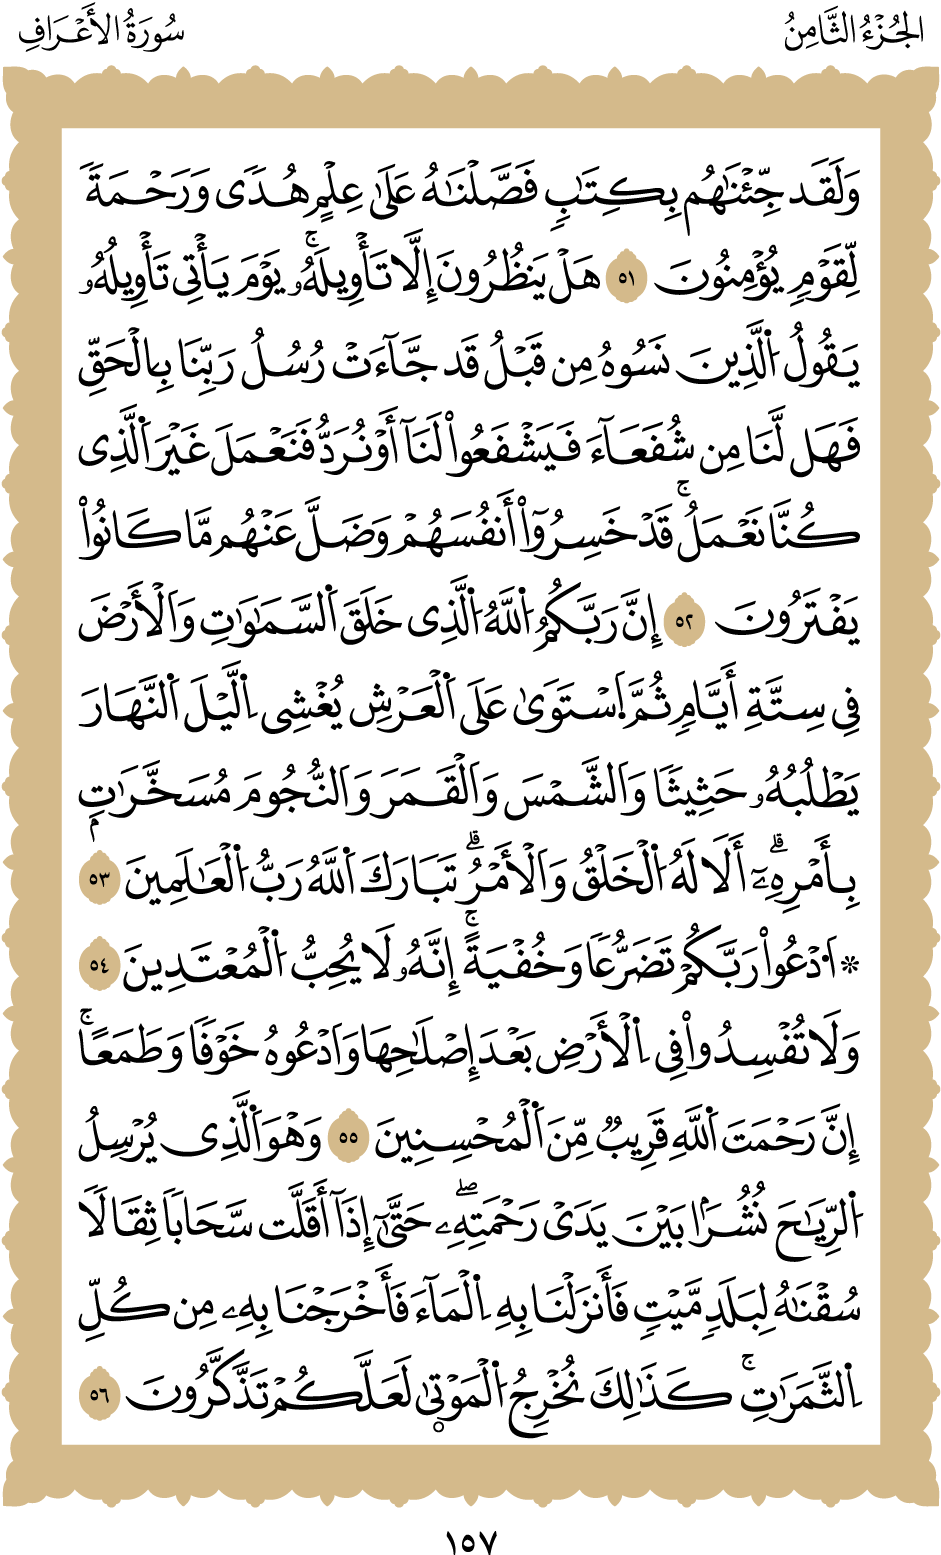 الجُزْءُ الثَّامِنُ
سُورَةُ الأَعْرَافِ
وَلَقَد جِّئْنَٰهُم بِكِتَٰبٖ فَصَّلْنَاهُ عَلَىٰ عِلْمٍ هُدٗى وَرَحْمَةٗ
لِّقَوْمٖ يُؤْمِنُونَ ٥١ هَلْ يَنظُرُونَ إِلَّا تَأْوِيلَهُۥۚ يَوْمَ يَأْتِى تَأْوِيلُهُۥ
يَقُولُ اَ۬لَّذِينَ نَسُوهُ مِن قَبْلُ قَد جَّآءَتْ رُسُلُ رَبِّنَا بِالْحَقِّ
فَهَل لَّنَا مِن شُفَعَآءَ فَيَشْفَعُواْ لَنَآ أَوْ نُرَدُّ فَنَعْمَلَ غَيْرَ اَ۬لَّذِى
كُنَّا نَعْمَلُۚ قَدْ خَسِرُوٓاْ أَنفُسَهُمْ وَضَلَّ عَنْهُم مَّا كَانُواْ
يَفْتَرُونَ ٥٢ إِنَّ رَبَّكُمُ اُ۬للَّهُ اُ۬لَّذِى خَلَقَ اَ۬لسَّمَٰوَٰتِ وَالْأَرْضَ
فِى سِتَّةِ أَيَّامٖ ثُمَّ اَ۪سْتَوَىٰ عَلَى اَ۬لْعَرْشِ يُغْشِى اِ۬لَّيْلَ اَ۬لنَّهَارَ
يَطْلُبُهُۥ حَثِيثٗا وَالشَّمْسَ وَالْقَمَرَ وَالنُّجُومَ مُسَخَّرَٰتِۭ
بِأَمْرِهِۦٓۗ أَلَا لَهُ اُ۬لْخَلْقُ وَالْأَمْرُۗ تَبَارَكَ اَ۬للَّهُ رَبُّ اُ۬لْعَٰلَمِينَ ٥٣
۞ اَ۟دْعُواْ رَبَّكُمْ تَضَرُّعٗا وَخُفْيَةًۚ إِنَّهُۥ لَا يُحِبُّ اُ۬لْمُعْتَدِينَ ٥٤
وَلَا تُفْسِدُواْ فِى اِ۬لْأَرْضِ بَعْدَ إِصْلَٰحِهَا وَادْعُوهُ خَوْفٗا وَطَمَعًاۚ
إِنَّ رَحْمَتَ اَ۬للَّهِ قَرِيبٞ مِّنَ اَ۬لْمُحْسِنِينَ ٥٥ وَهْوَ اَ۬لَّذِى يُرْسِلُ
اُ۬لرِّيَٰحَ نُشُرَۢا بَيْنَ يَدَىْ رَحْمَتِهِۦۖ حَتَّىٰٓ إِذَآ أَقَلَّت سَّحَابٗا ثِقَالٗا
سُقْنَٰهُ لِبَلَدٖ مَّيْتٖ فَأَنزَلْنَا بِهِ اِ۬لْمَآءَ فَأَخْرَجْنَا بِهِۦ مِن كُلِّ
اِ۬لثَّمَرَٰتِۚ كَذَٰلِكَ نُخْرِجُ اُ۬لْمَوْتۭىٰ لَعَلَّكُمْ تَذَّكَّرُونَ ٥٦
١٥٧